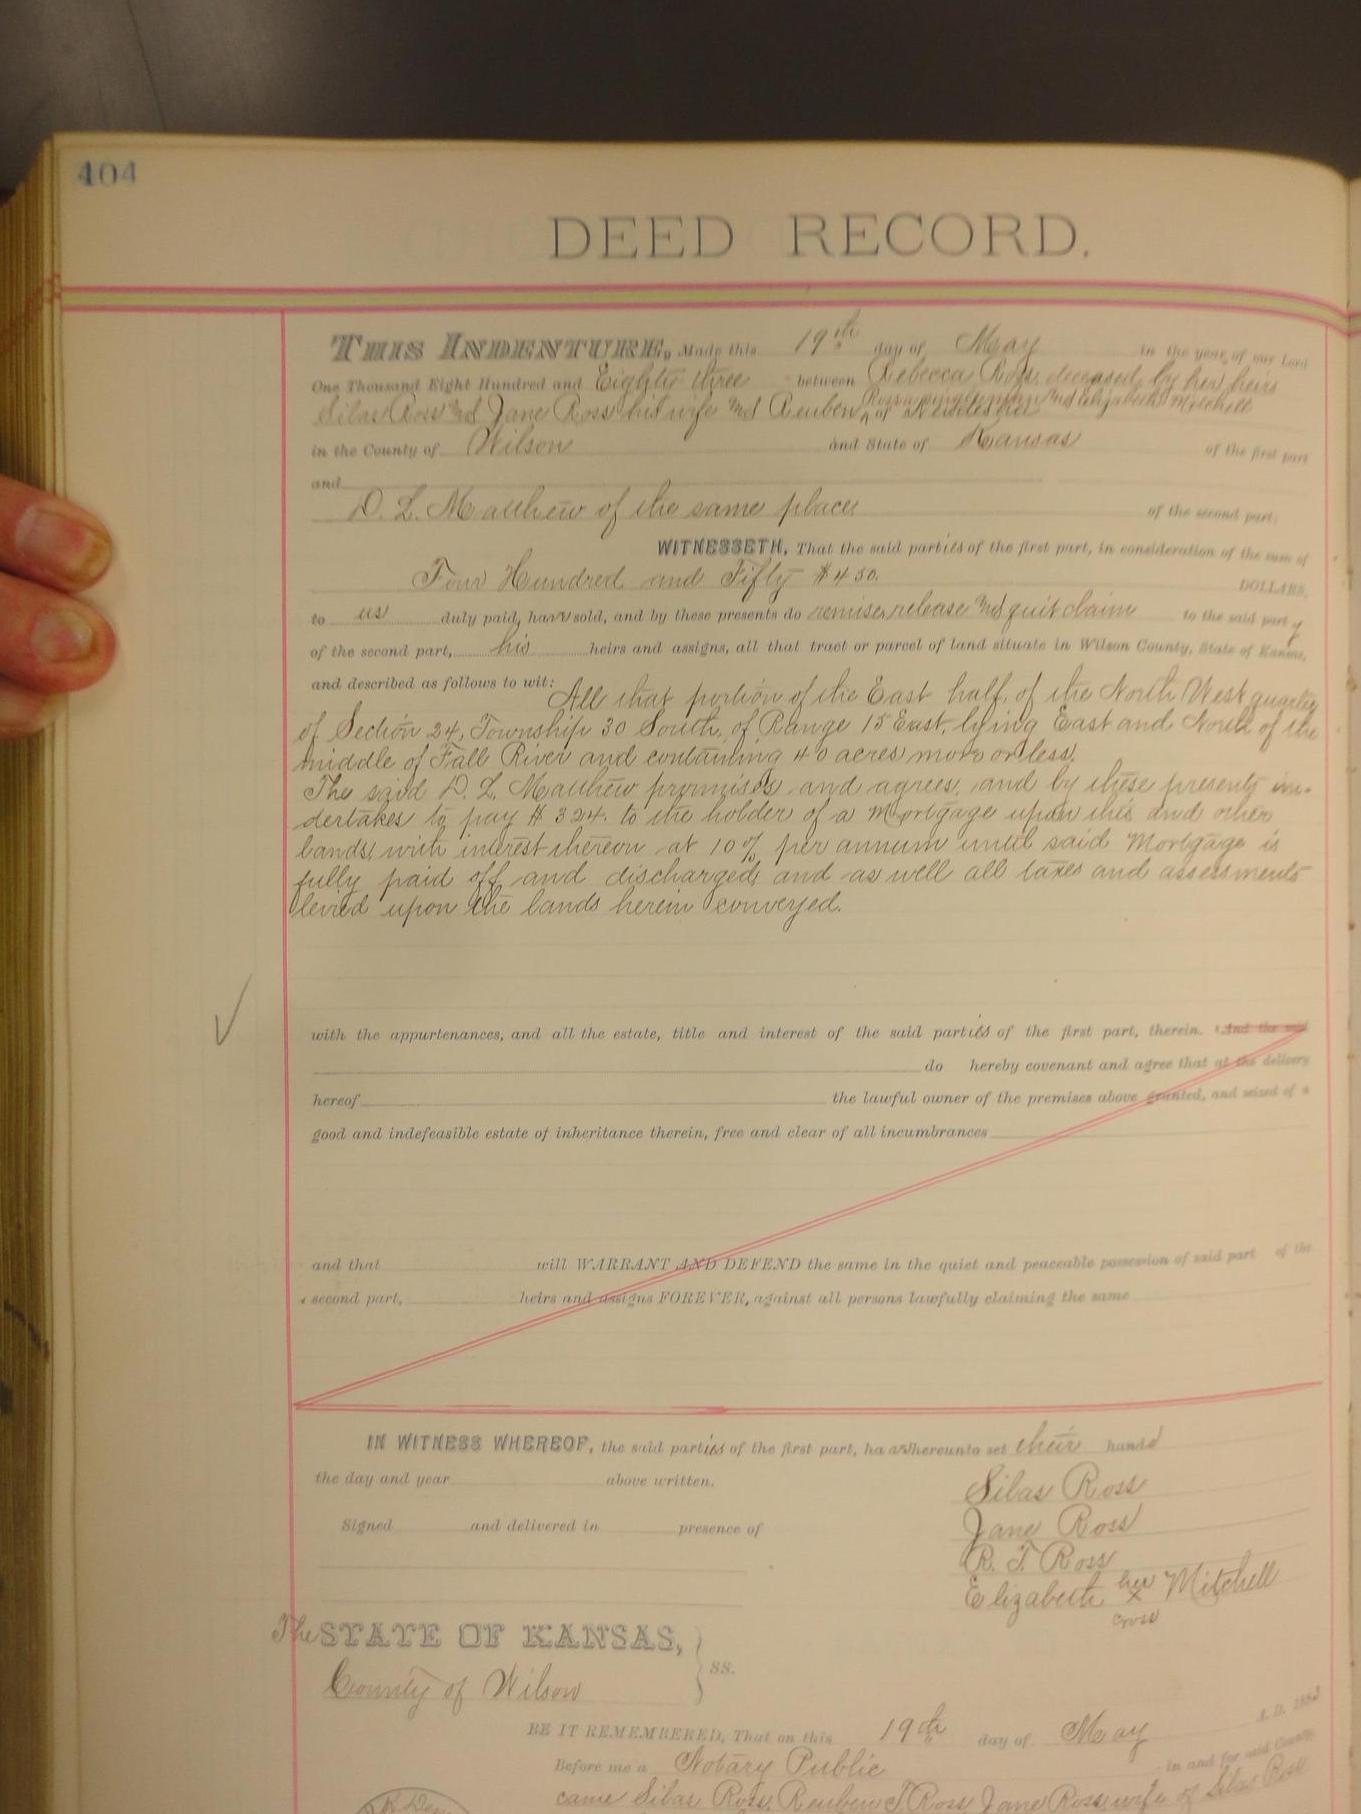 404
DEED RECORD.
THIS INDENTURE, Made this 19th day of May in the year of our Lord
One Thousand Eight Hundred and Eighty three between Rebecca Ross, deceased, by her heirs
Silas Ross and Jane Ross his wife and Reuben Ross a single man and Elizabeth Mitchell
of Neodesha
in the County of Wilson and State of Kansas of the first part
and
D. L. Matthew of the same place of the second part:
WITNESSETH, That the said parties of the first part, in consideration of the sum of
Four Hundred and Fifty $450. DOLLARS,
to us duly paid, have sold, and by these presents do remise, release and quit claim to the said party
of the second part, his heirs and assigns, all that tract or parcel of land situate in Wilson County, State of Kansas,
and described as follows to wit: All that portion of the East half, of the North West quarter
of Section 24, Township 30 South, of Range 15 East, lying East and North of the
middle of Fall River and containing 40 acres more or less.
The said D. L. Matthew promises and agrees, and by these presents un-
dertakes to pay $324. to the holder of a Mortgage upon this and other
lands, with interest thereon at 10% per annum until said Mortgage is
fully paid off and discharged, and as well all taxes and assessments
levied upon the lands herein conveyed.
with the appurtenances, and all the estate, title and interest of the said parties of the first part, therein. And the said
do hereby covenant and agree that at the delivery
hereof the lawful owner of the premises above granted, and seized of a
good and indefeasible estate of inheritance therein, free and clear of all incumbrances
and that will WARRANT AND DEFEND the same in the quiet and peaceable possession of said part of the
second part, heirs and assigns FOREVER, against all persons lawfully claiming the same
IN WITNESS WHEREOF, the said parties of the first part, have hereunto set their hands
the day and year above written.
Silas Ross
Signed and delivered in presence of
Jane Ross
R. T. Ross
Elizabeth her x Mitchell
cross
The STATE OF KANSAS,
County of Wilson ss.
BE IT REMEMBERED, That on this 19th day of May A. D. 1883
Before me a Notary Public in and for said County
came Silas Ross, Reuben T Ross Jane Ross wife of Silas Ross